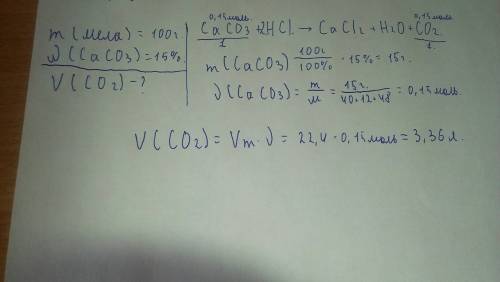 m (мела) = 100г.
ν (CaCO3) = 15%.
V (CO2) - ?
0,15 моль 0,15 моль
CaCO3 + 2HCl → CaCl2 + H2O + CO2
1 1
m (CaCO3) 100г / 100% · 15% = 15г.
ν (CaCO3) = m / M = 15г. / 40+12+48 = 0,15 моль.
V (CO2) = Vm · ν = 22,4 · 0,15 моль = 3,36 л.